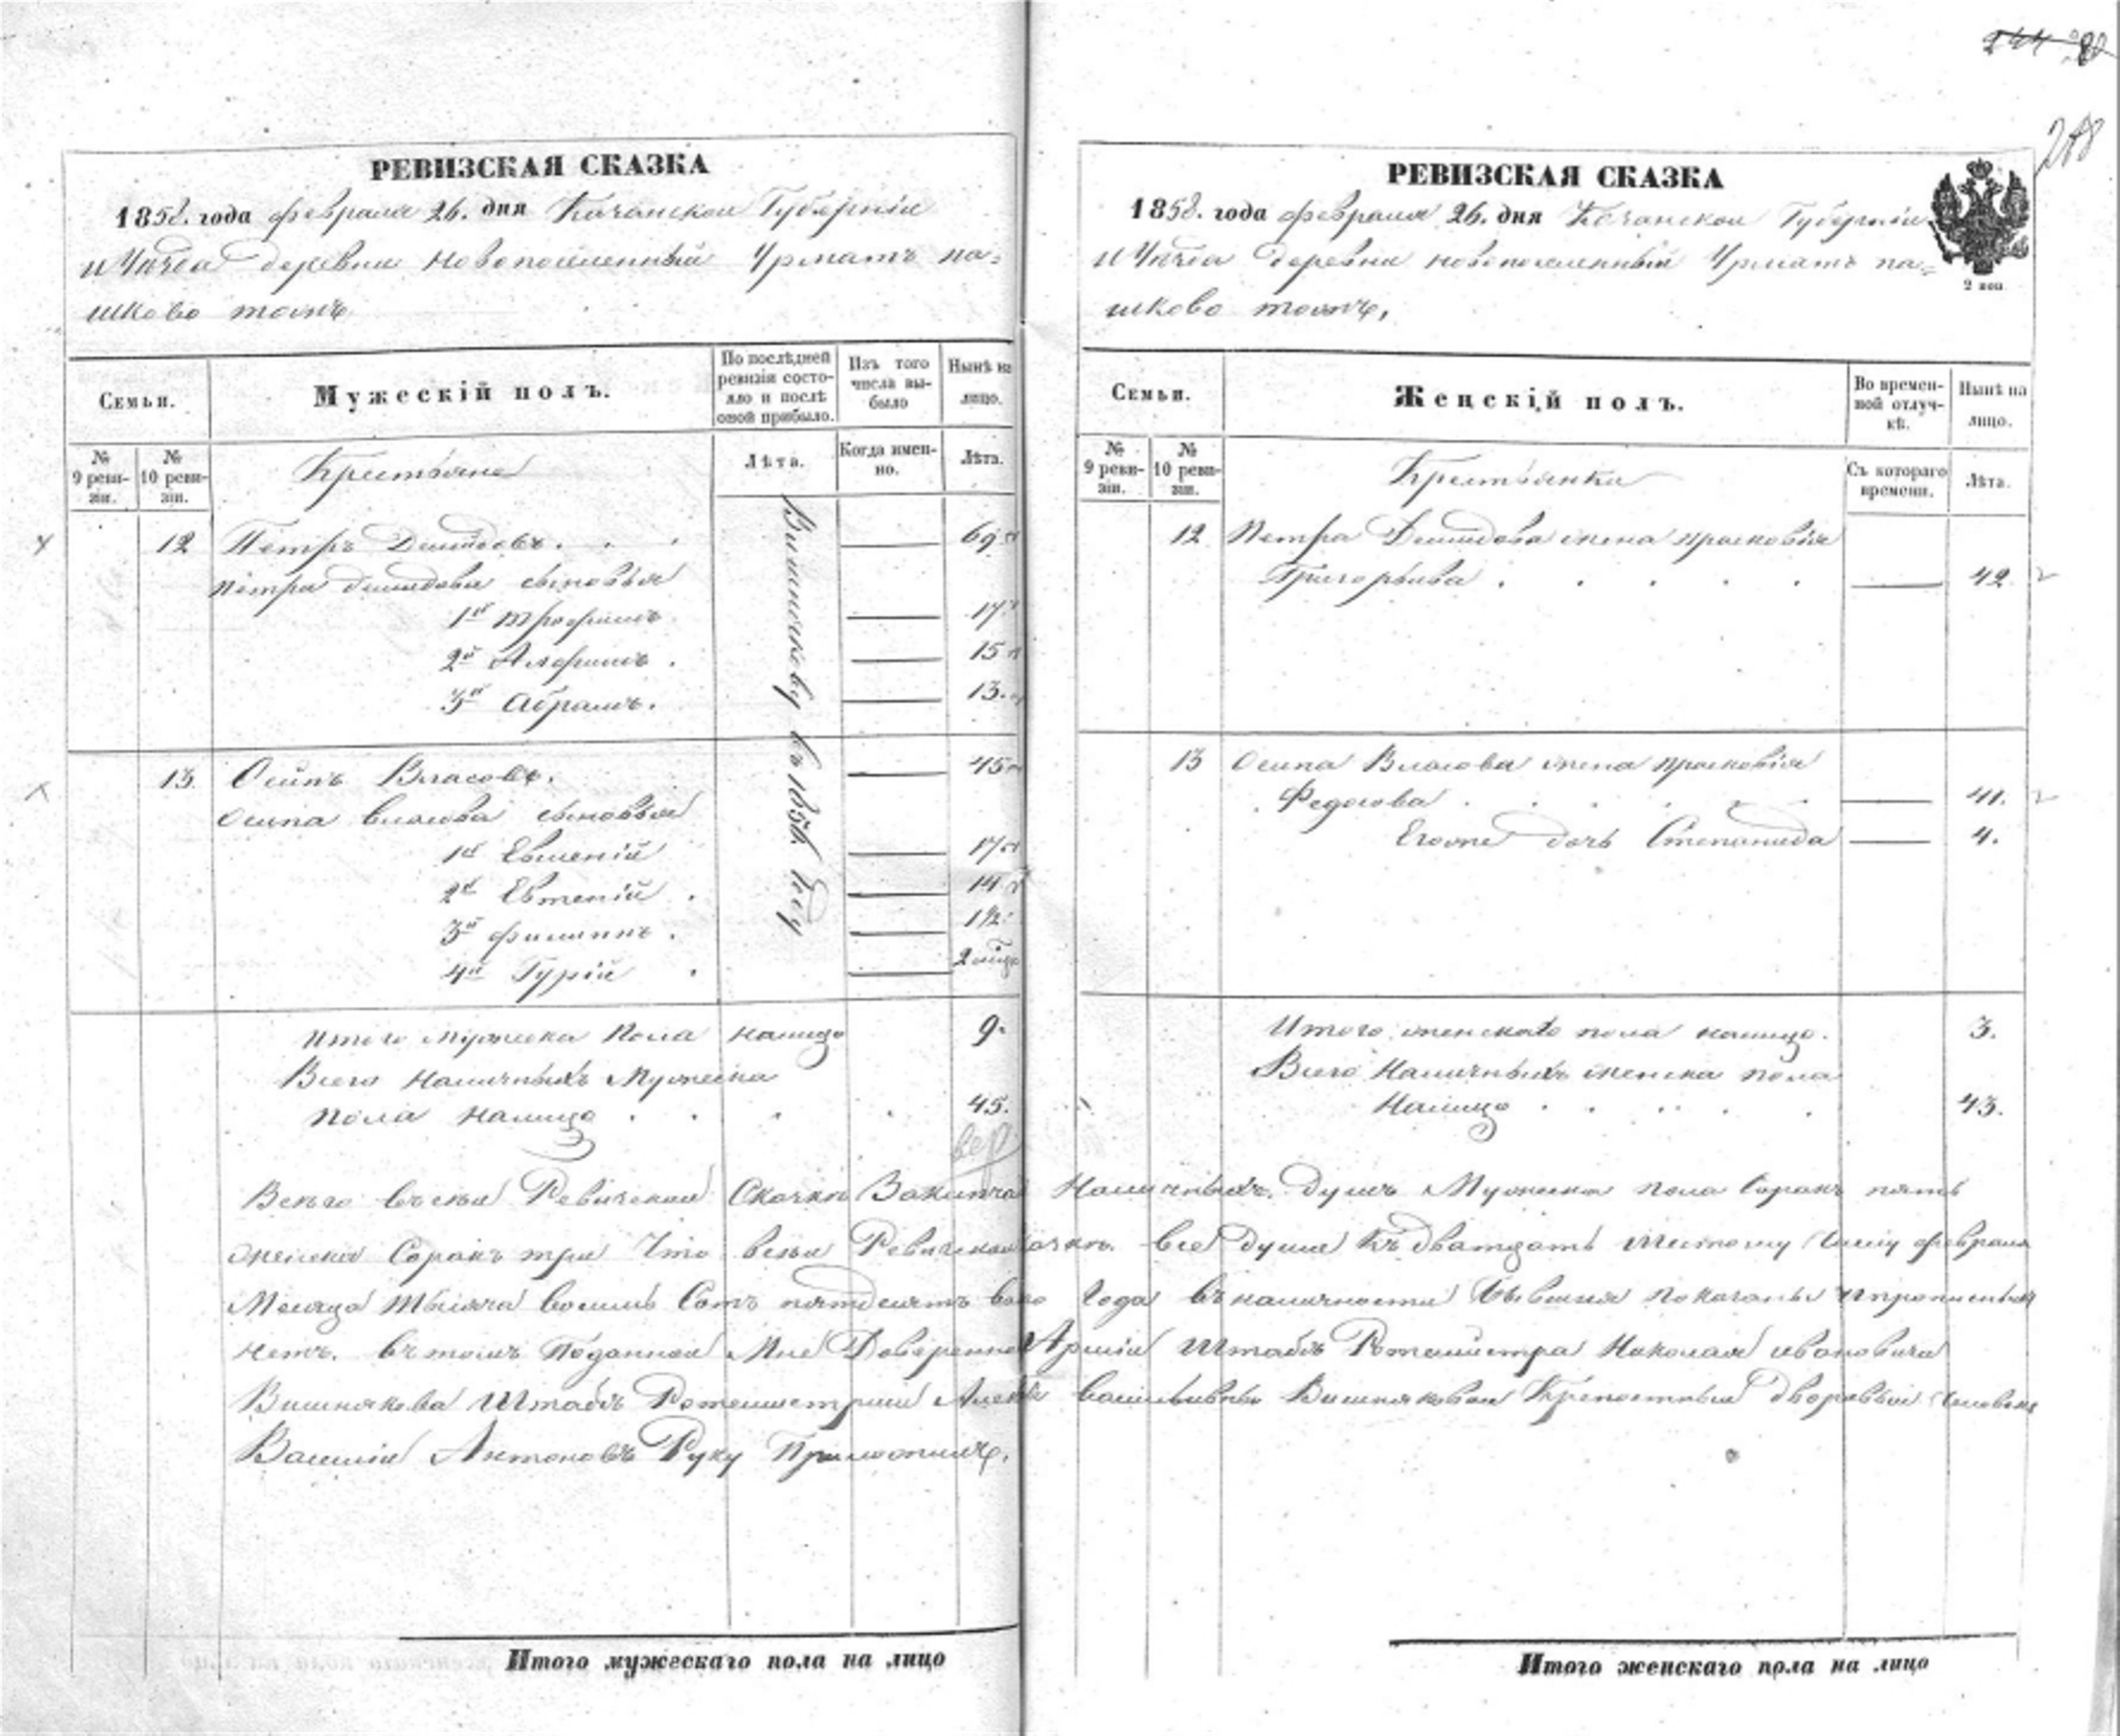 244
218
РЕВИЗСКАЯ СКАЗКА
1858. года февраля 26. дня Казанской Губерніи
и Уѣзда деревни Новопоселенный Урматъ па=
шково тожъ
Семьи.
Мужескій полъ.
По послѣдней ревизіи состояло и послѣ оной прибыло.
Изъ того числа выбыло
Нынѣ на лицо.
№ 9 ревизіи.
№ 10 ревизіи.
Крестьяне
Лѣта.
Когда именно.
Лѣта.
12 Петръ Демидовъ. 69
Петра Демидова сыновья
1й Трофимъ 17
2й Алфимъ. 15
3й Абрамъ. 13.
13. Осипъ Власовъ. 45
Осипа Власова сыновья
1й Евмений 17
2й Евтений. 14
3й Филиппъ. 1/2
4й Гурій 2
в 1856 году
Итого Мужеска Пола налицо 9.
Всего Наличныхъ Мужеска
Пола Налицо 45.
РЕВИЗСКАЯ СКАЗКА
1858. года февраля 26. дня Казанской Губерніи
и Уѣзда деревни новопоселенный Урматъ па=
шково тожъ,
2 коп
Семьи.
Женскій полъ.
Во временной отлучкѣ.
Нынѣ на лицо.
№ 9 ревизіи.
№ 10 ревизіи.
Крестьянки
Съ котораго времени.
Лѣта.
12 Петра Демидова жена прасковья
Григорьева 42
13 Осипа Власова жена прасковья
Федотова 41.
Егоже дочь Степанида 4.
Итого женскаго пола налицо. 3.
Всего Наличныхъ женска пола
Налицо 43.
Всего всей Ревизской Сказки Наличныхъ душъ Мужеска пола Сорокъ пять
женска Сорокъ три Что всей Ревизской все души къ двадцать шестому Числу февраля
Месяца тысяча восемь Сотъ пятдесятъ Года въ наличности бывшия показаны
нетъ. въ томъ Поданной Мне Армии Штабъ Ротмистра Николая ивановича
Вишнякова Штабъ Ротмистрши васильевны Вишняковой Крепостный дворовый Человекъ
Василий Антоновъ Руку Приложилъ.
Итого мужескаго пола на лицо
Итого женскаго пола на лицо